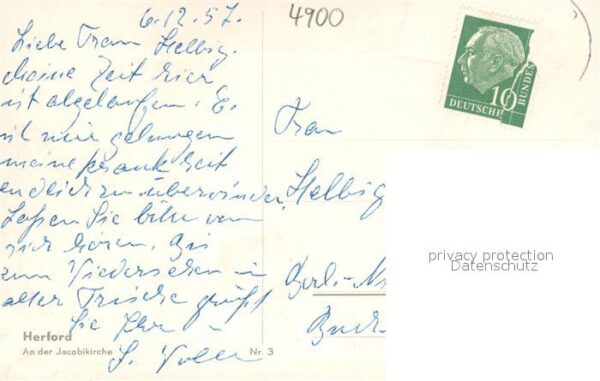 6.12.57.
4900
Liebe Frau Helbig.
Meine Zeit hier
ist abgelaufen. Es
ist mir gelungen
meine Krankheit
endlich zu überwinden.
Lassen Sie bitte von
sich hören. Bis
zum Wiedersehen in
alter Frische grüßt
Sie Ihre
Herford
An der Jacobikirche
Nr. 3
10
DEUTSCHE
BUNDES
Frau
Helbig
Berlin-
privacy protection
Datenschutz